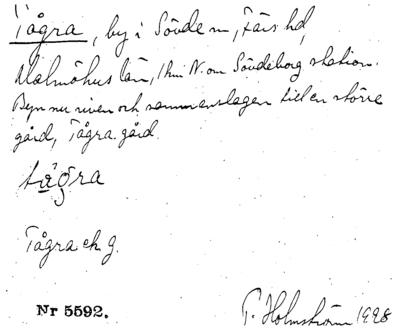 Tågra, by i Sövde sn, Färs hd,
Malmöhus län, 1 km N. om Sövdeborg station.
Byn nu riven och sammanslagen till en större
gård, Tågra gård.
tågra
Tågra ek g.
Nr 5592.
T. Holmström 1928